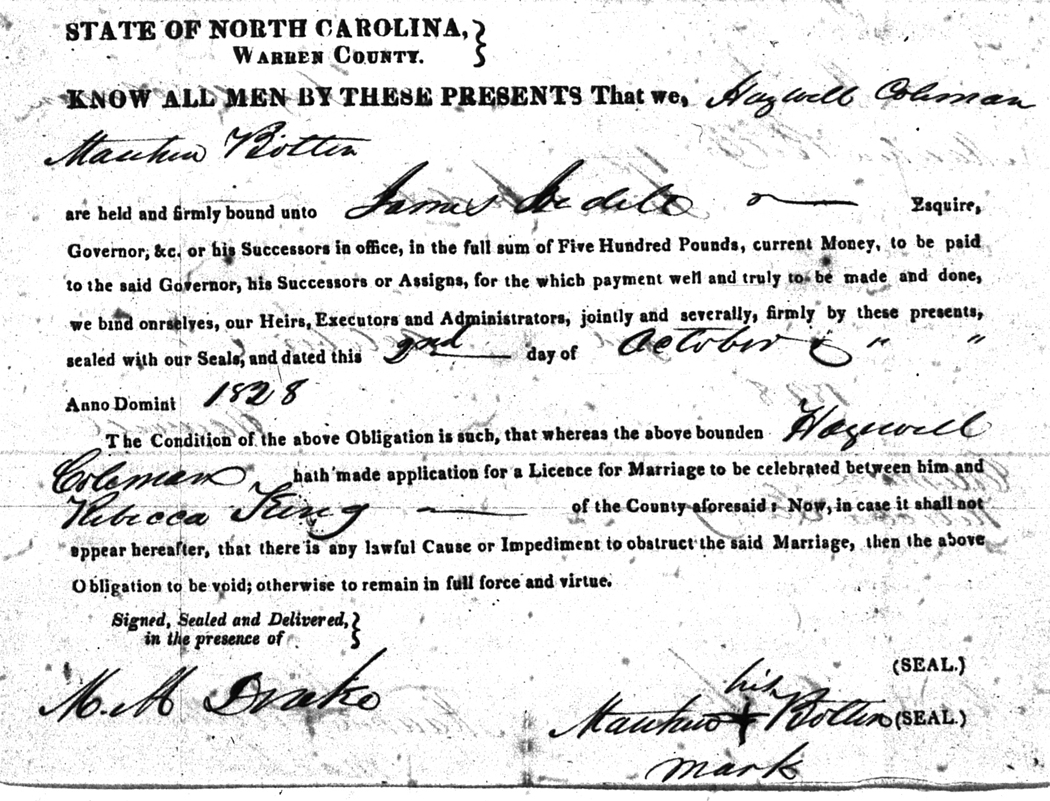 STATE OF NORTH CAROLINA,
WARREN COUNTY.
KNOW ALL MEN BY THESE PRESENTS That we, Haywell Coleman
Matthew Bolten
are held and firmly bound unto James Iredell Esquire,
Governor, &c. or his Successors in office, in the full sum of Five Hundred Pounds, current Money, to be paid
to the said Governor, his Successors or Assigns, for the which payment well and truly to be made and done,
we bind onrselves, our Heirs, Executors and Administrators, jointly and severally, firmly by these presents,
sealed with our Seals, and dated this 2nd day of October " "
Anno Domini 1828
The Condition of the above Obligation is such, that whereas the above bounden Haywell
Coleman hath made application for a Licence for Marriage to be celebrated between him and
Rebecca King of the County aforesaid: Now, in case it shall not
appear hereafter, that there is any lawful Cause or Impediment to obstruct the said Marriage, then the above
Obligation to be void; otherwise to remain in full force and virtue.
Signed, Sealed and Delivered,
in the presence of
(SEAL.)
his
M. M Drake Matthew + Bolten (SEAL.)
mark